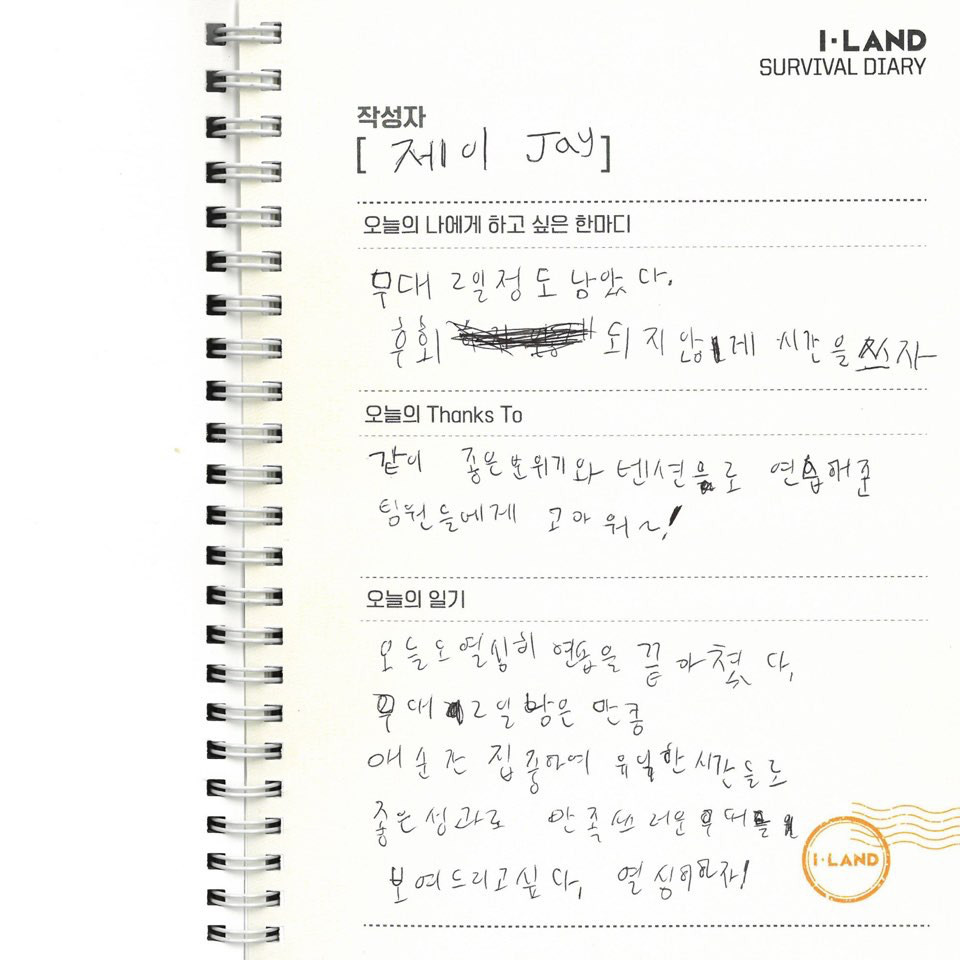 I·LAND
SURVIVAL DIARY
작성자
[ 제이 Jay ]
오늘의 나에게 하고 싶은 한마디
무대 2일정도 남았다.
후회 되지 않게 시간을 쓰자
오늘의 Thanks To
같이 좋은 분위기와 텐션으로 연습해준
팀원들에게 고마워~!
오늘의 일기
오늘도 열심히 연습을 끝마쳤다,
무대 2일 남은 만큼
매순간 집중하여 유일한 시간들로
좋은 성과로 만족쓰러운 무대를
보여드리고싶다, 열심히하자!
I·LAND